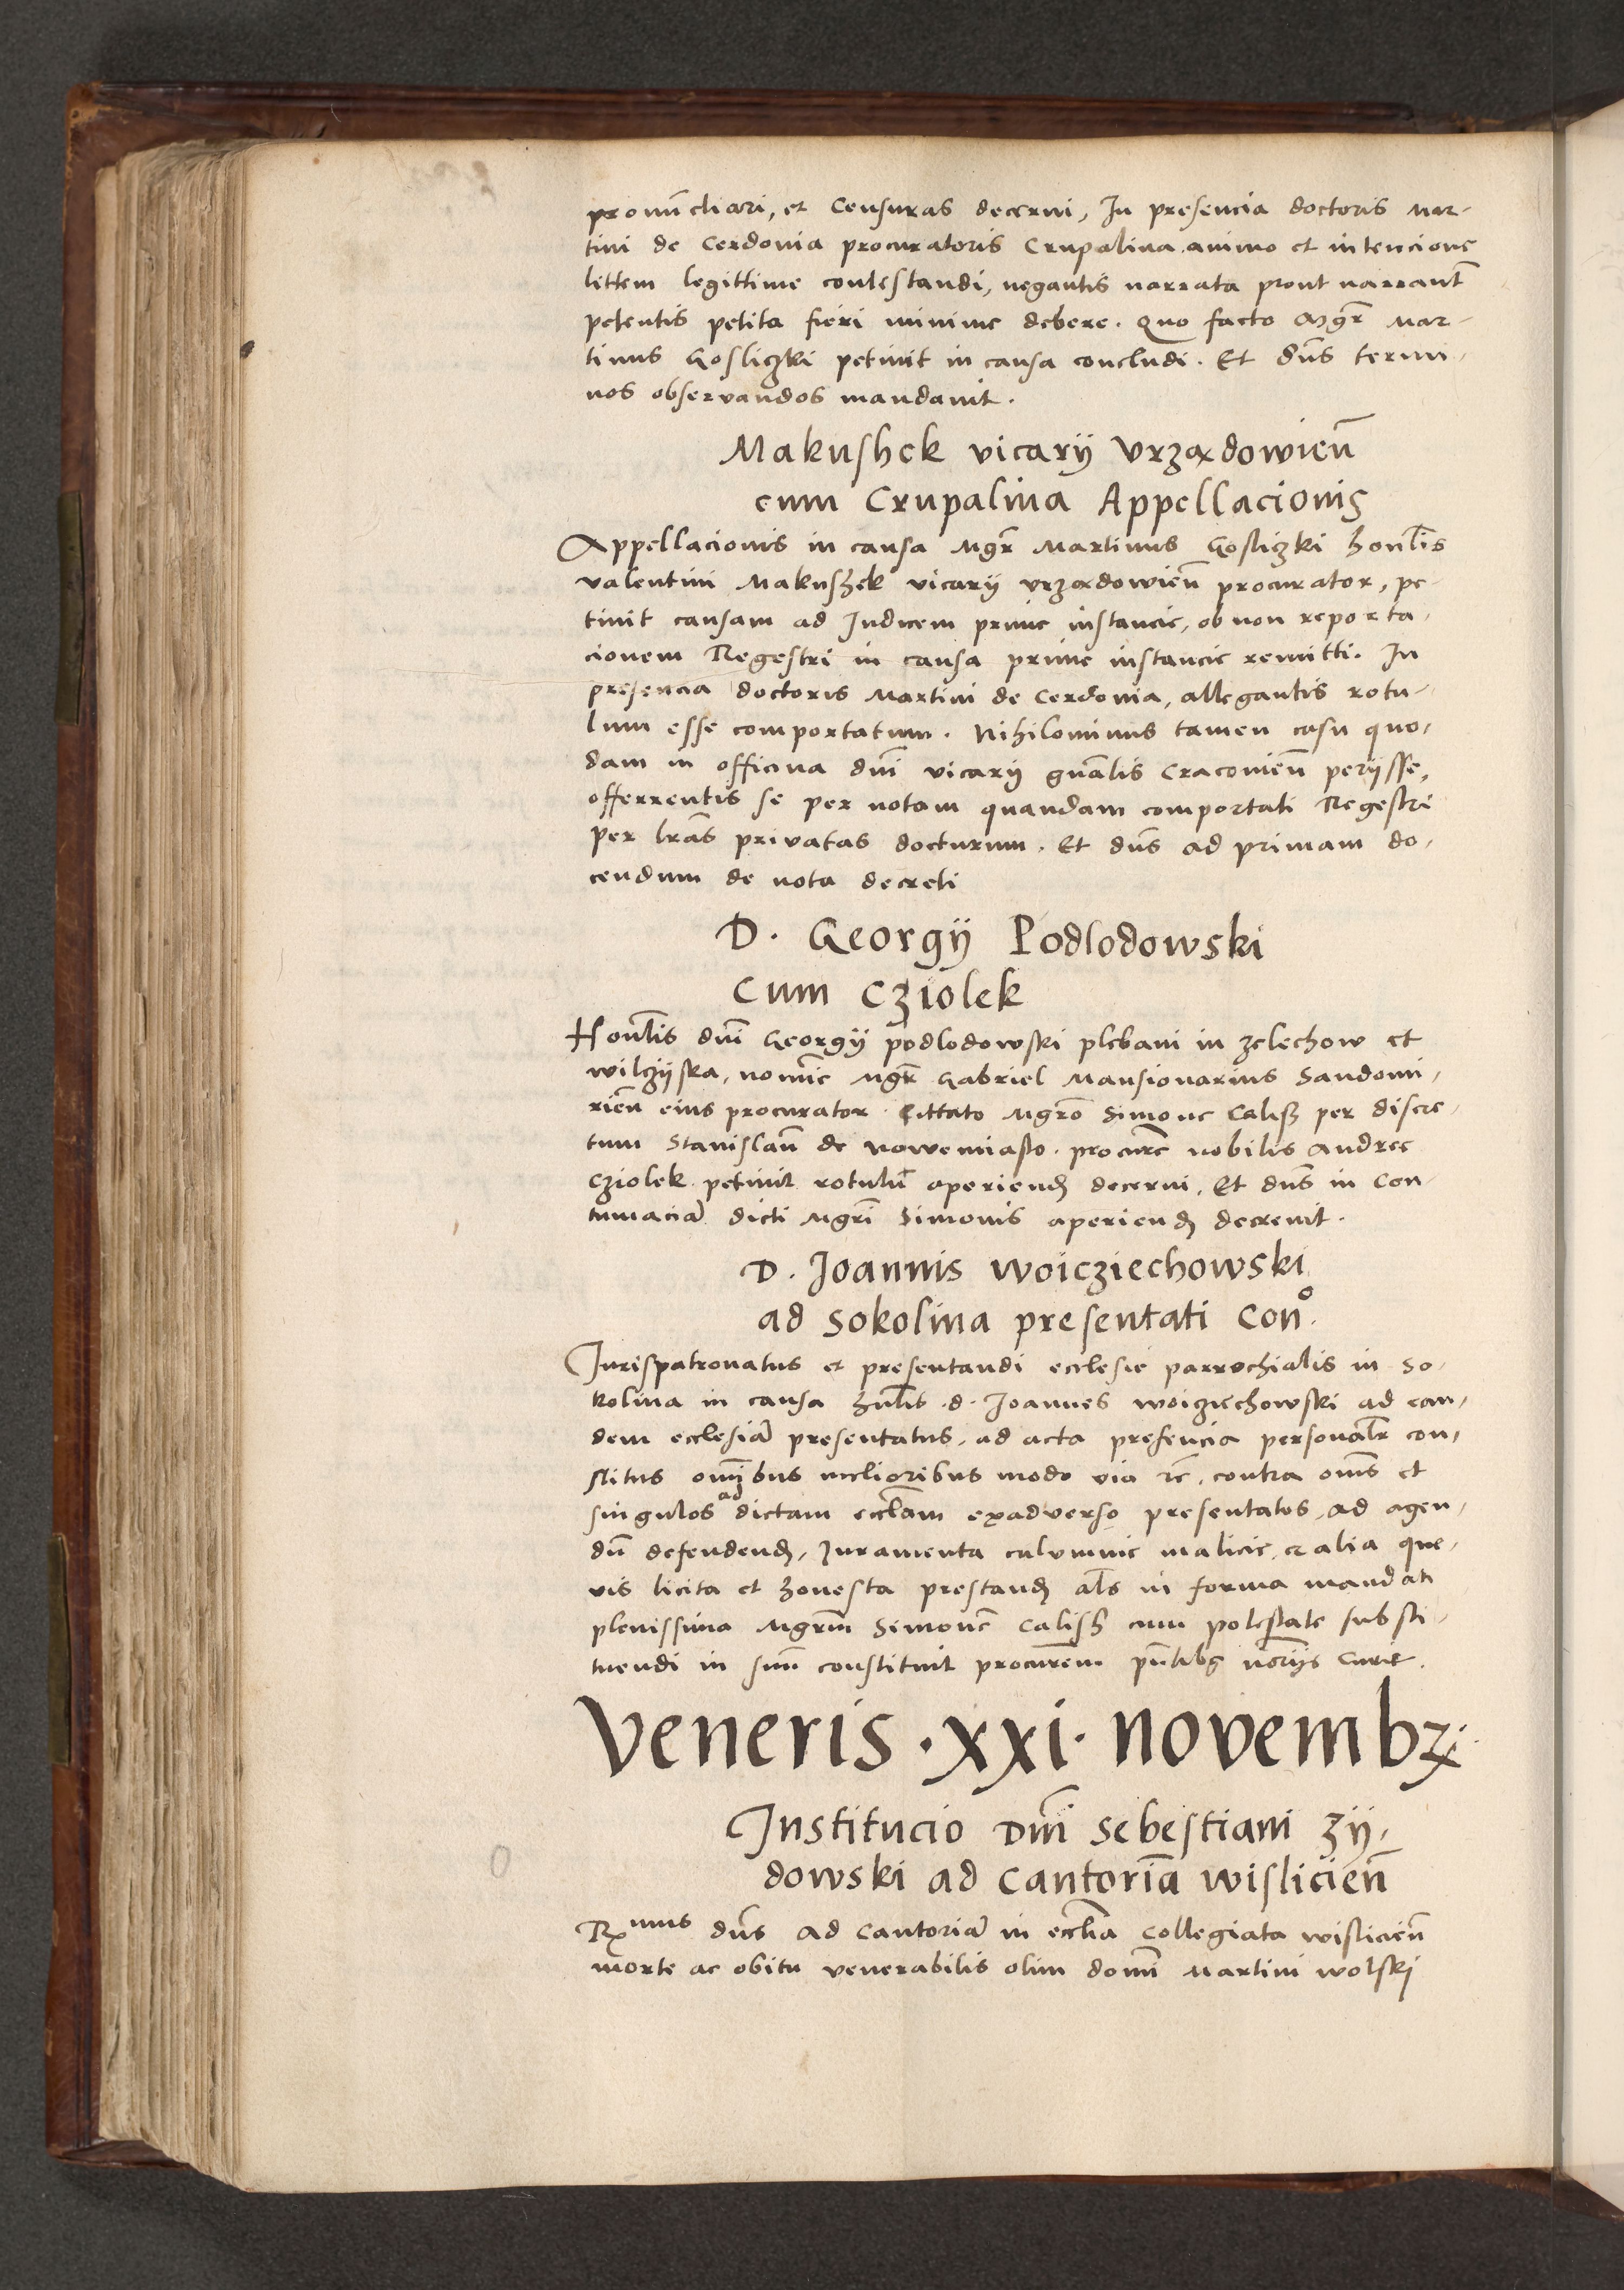 pronu͞ctiari, et Censuras decerni, In presencia doctoris Mar-
tini de Cerdonia procuratoris Crupalina animo et intencione
littem legittime contestandi, negantis narrata prout narrant͞
petentis petita fieri minime debere. Quo facto Mgr͞ Mar-
tinus Gosliczki petiuit in causa concludi. Et dn͞s termi-
nos obseruandos mandauit.
Makushek vicarij Vrzædowien͞
cum Crupalina Appellacionis
Appellacionis in causa Mgr͞ Martinus Gosliczki honl͞is
valentini Makushek vicarij vrzædowien͞ procurator, pe-
tiuit causam ad Judicem prime instancie, ob non reporta-
cionem Regestri in causa prime instancie remitti. In
presencia doctoris Martini de Cerdonia, allegantis rotu-
lum esse comportatum. Nihilominus tamen casu quo-
dam in officina dni͞ vicarij gn͞alis Cracouien͞ perijsse,
offerrentis se per notam quandam comportati Regestri
per lr͞as priuatas docturum. Et dn͞s ad primam do-
cendum de nota decreti
D. Georgij Podlodowski
cum Cziolek
Honl͞is dni͞ Georgij podlodowski plebani in zelechow et
wilczijska, nomi͞e Mgr͞ Gabriel Mansionarius Sandomi-
rien͞ eius procurator Cittato Mgro͞ Simone Calish per discre-
tum Stanislau͞ de Nowemiasto procure͞ nobilis Andree
Cziolek petiuit rotulu͞ aperiendȝ decerni, Et dn͞s in Con-
tumacia͞ dicti Mgri͞ Simonis aperiendȝ decreuit.
D. Joannis Woicziechowski
ad Sokolina presentati Con°.
Jurispatronatus et presentandi ecclesie parrochialis in So-
kolina in causa hnl͞is d. Joannes Woicziechowski ad ean-
dem ecclesia͞ presentatus, ad acta presencia personalr͞ con-
stitus om͞ibus melioribus modo via rc͞, contra om͞s et
singulos ad dictam eccl͞am exaduerso presentatos, ad agen-
du͞ defendendȝ, Juramenta calumnie malicie, et alia que-
vis licita et honesta prestandȝ al͞s in forma mandati
plenissima Mgrm͞ Simone͞ Calish cum potestate substi-
tuendi in suu͞ constituit procurem͞ pn͞tibȝ not͞rijs Curie.
Veneris .xxi. Novembr.
Institucio Dni͞ Sebestiani Zij-
dowski ad Cantoria͞ Wislicien͞
Rmus dn͞s ad Cantoria͞ in eccl͞ia Collegiata wislicien͞
morte ac obitu venerabilis olim domi͞ Martini wolski